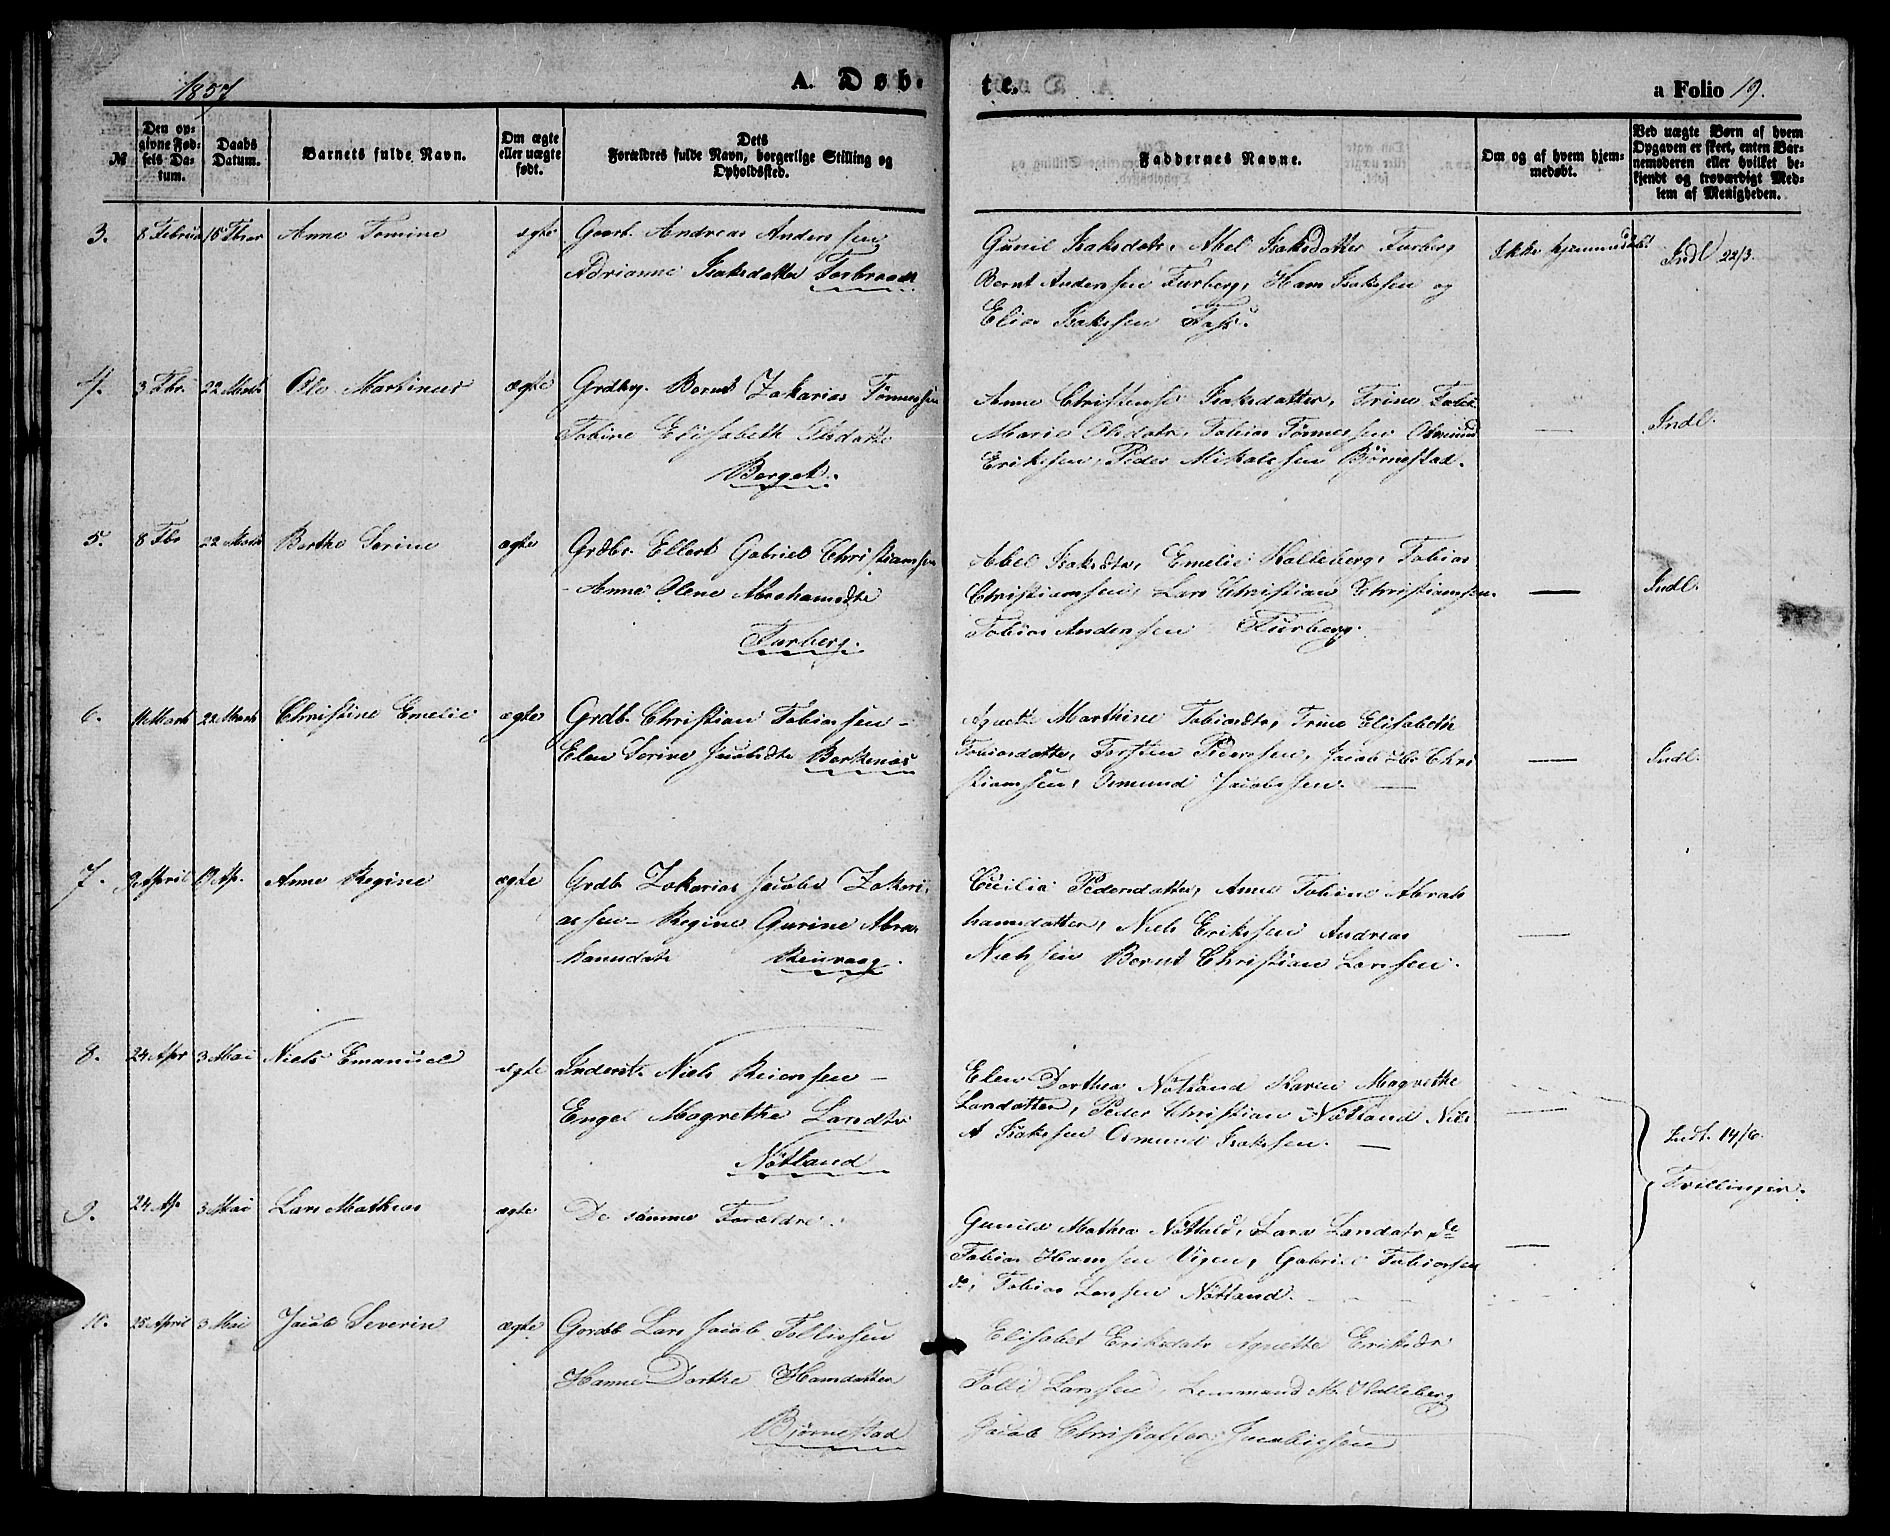 1857
A. Døb-
te.
a Folio 19.
№
Den op-
givne Fød-
sels Da-
tum.
Daabs
Datum.
Barnets fulde Navn.
Om ægte
eller uægte
født.
Dets
Forældres fulde Navn, borgerlige Stilling og
Opholdssted.
Faddernes Navne.
Om og af hvem hjem-
medøbt.
Ved uægte Børn af hvem
Opgaven er skeet, enten Bar-
nemoderen eller hvilket be-
kjendt og troværdigt Med-
lem af Menigheden.
3.
8 Februar
15 Fbrar
Anne Tomine
ægte
Andreas Anderssen
Adrianne Isaksdatter
Gunil Isaksdatr, Abel Isaksdatter Furberg
Bernt Anderssen Furberg, Hans Isaksen og
Elias Isaksen
Ikke hjemmedøbt
Indl 22/3.
4.
3 Fbr.
22 Marts
Ole Martinus
ægte
Grdbrg. Bernt Zakarias Tønnessen
Tobine Elisabeth Olsdatter
Berget.
Anne Christense Isaksdatter, Trine
Marie Olsdatr, Tobias Tønnessen Osmund
Eriksen, Peder Mikalesen Bjørnestad.
—
Indl.
5.
8 Fbr
22 Marts
Berthe Serine
ægte
Grdbr. Ellert Gabriel Christianssen
- Anne Olene Abrahamsdtr
Furberg.
Abel Isaksdtr, Emelie Kalleberg, Tobias
Christianssen, Lars Christian Christianssen.
Tobias Anderssen Furberg.
—
Indl.
6.
11 Marts
22 Marts
Christine Emelie
ægte
Grdb. Christian Tobiassen -
Elen Serine Jacobsdtr Birkenes
Agnethe Marthine Tobiasdtr, Trine Elisabeth
Tobiasdatter, Torsten Pederssen, Jacob Chri
stianssen, Osmund Jacobssen. —
—
Indl.
7.
9 April
19 Ap.
Anne Regine
ægte
Grdb Zakarias Jacob Zakari-
assen - Regine Gurine Abra-
hamsdatr
Reisvaag.
Cecilia Pedersdatter, Anne Tobine Abrah
hamsdatter, Niels Erikssen Andreas
Nielssen Bernt Christian Larssen.
—
8.
24 Apr
3 Mai
Niels Emanuel
ægte
Inderst. Niels Reierssen -
Engel Magrethe Larsdtr
Nøtland
Elen Dorthea Nøtland Karen Magrethe
Larsdatter, Peder Christian Nøtland Niels
A Isakssen Osmund Isakssen. —
—
Indl. 14/6.
Tvillinger.
9.
24 Ap.
3 Mai
Lars Mathias
ægte
De samme Forældre.
Gunild Mathea Nøtland, Lara Larsdatr do
Tobias Hanssen Vigen, Gabriel Tobiassen
do, Tobias Larssen Nøtland.
—
10.
25 April
3 Mai
Jacob Severin
ægte
Gardb Lars Jacob Tollissen
Hanne Dorthe Hansdatter
Bjørnestad
Elisabet Eriksdatr Agnette Eriksdr
Tolli Larssen, Lensmand M. Kalleberg
Jacob Christoffer Jacobssen